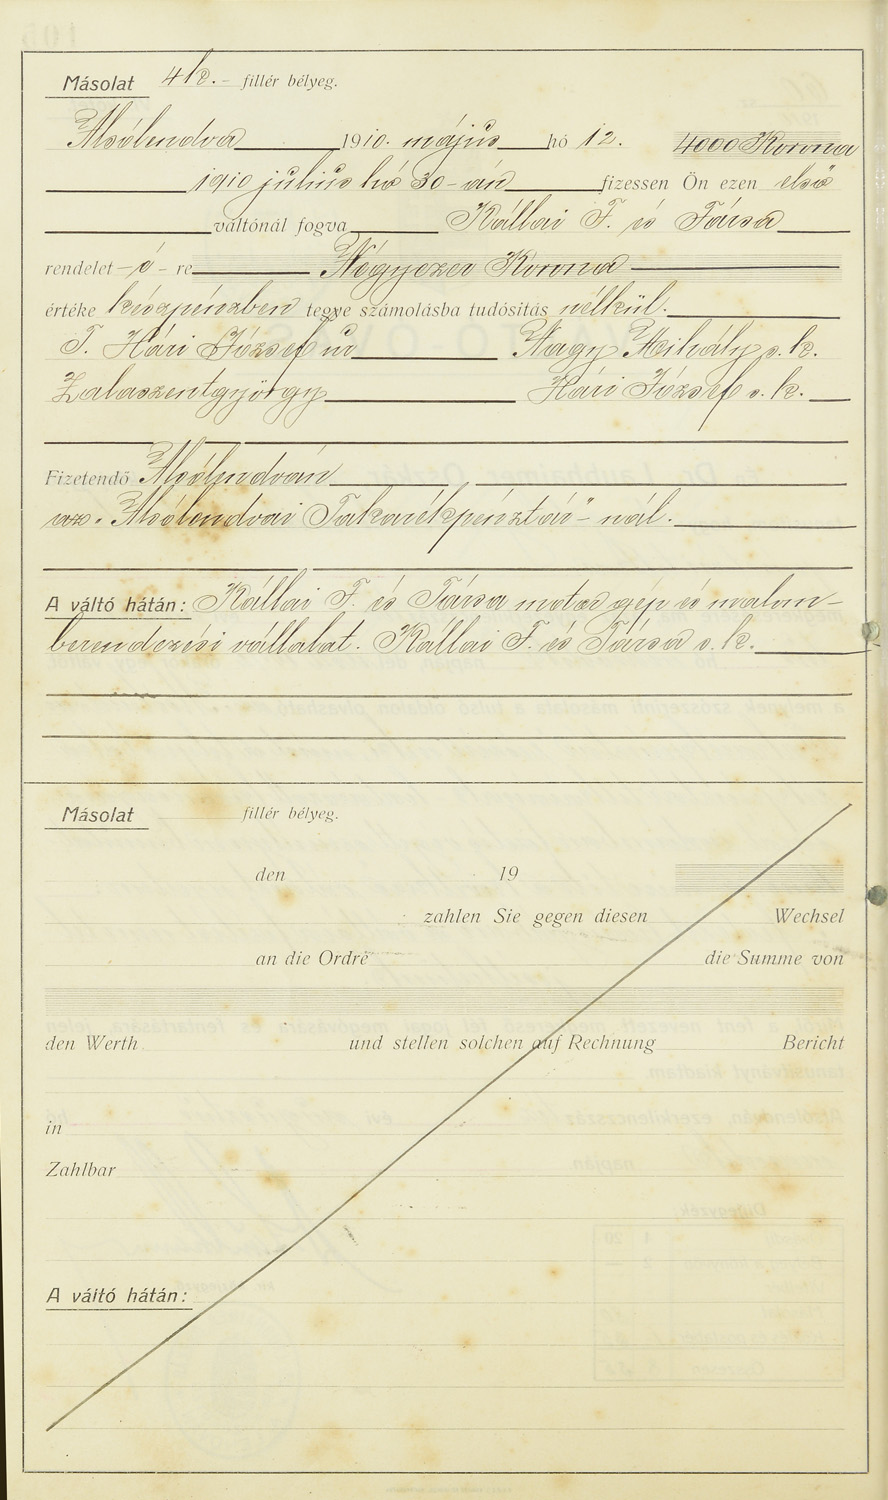 Másolat 4 k.- fillér bélyeg.
Alsólendva 1910. május hó 12. 4000 Korona
1910 julius hó 30-án fizessen Ön ezen első
váltónál fogva Kállai F. és Társa
rendelet -é- re Négyezer Korona
értéke készpénzben tegye számolásba tudósítás nélkül.
T. Hári József ur Nagy Mihály s. k.
Zalaszentgyörgy Hári József s. k.
Fizetendő Alsólendván
az „Alsólendvai Takarékpénztár"- nál.
A váltó hátán: Kállai F. és Társa motor gép és malom-
berendezési vállalat. Kállai F. és Társa s. k.
Másolat fillér bélyeg.
den 19
zahlen Sie gegen diesen Wechsel
an die Ordre die Summe von
den Werth und stellen solchen auf Rechnung Bericht
in
Zahlbar
A váltó hátán: